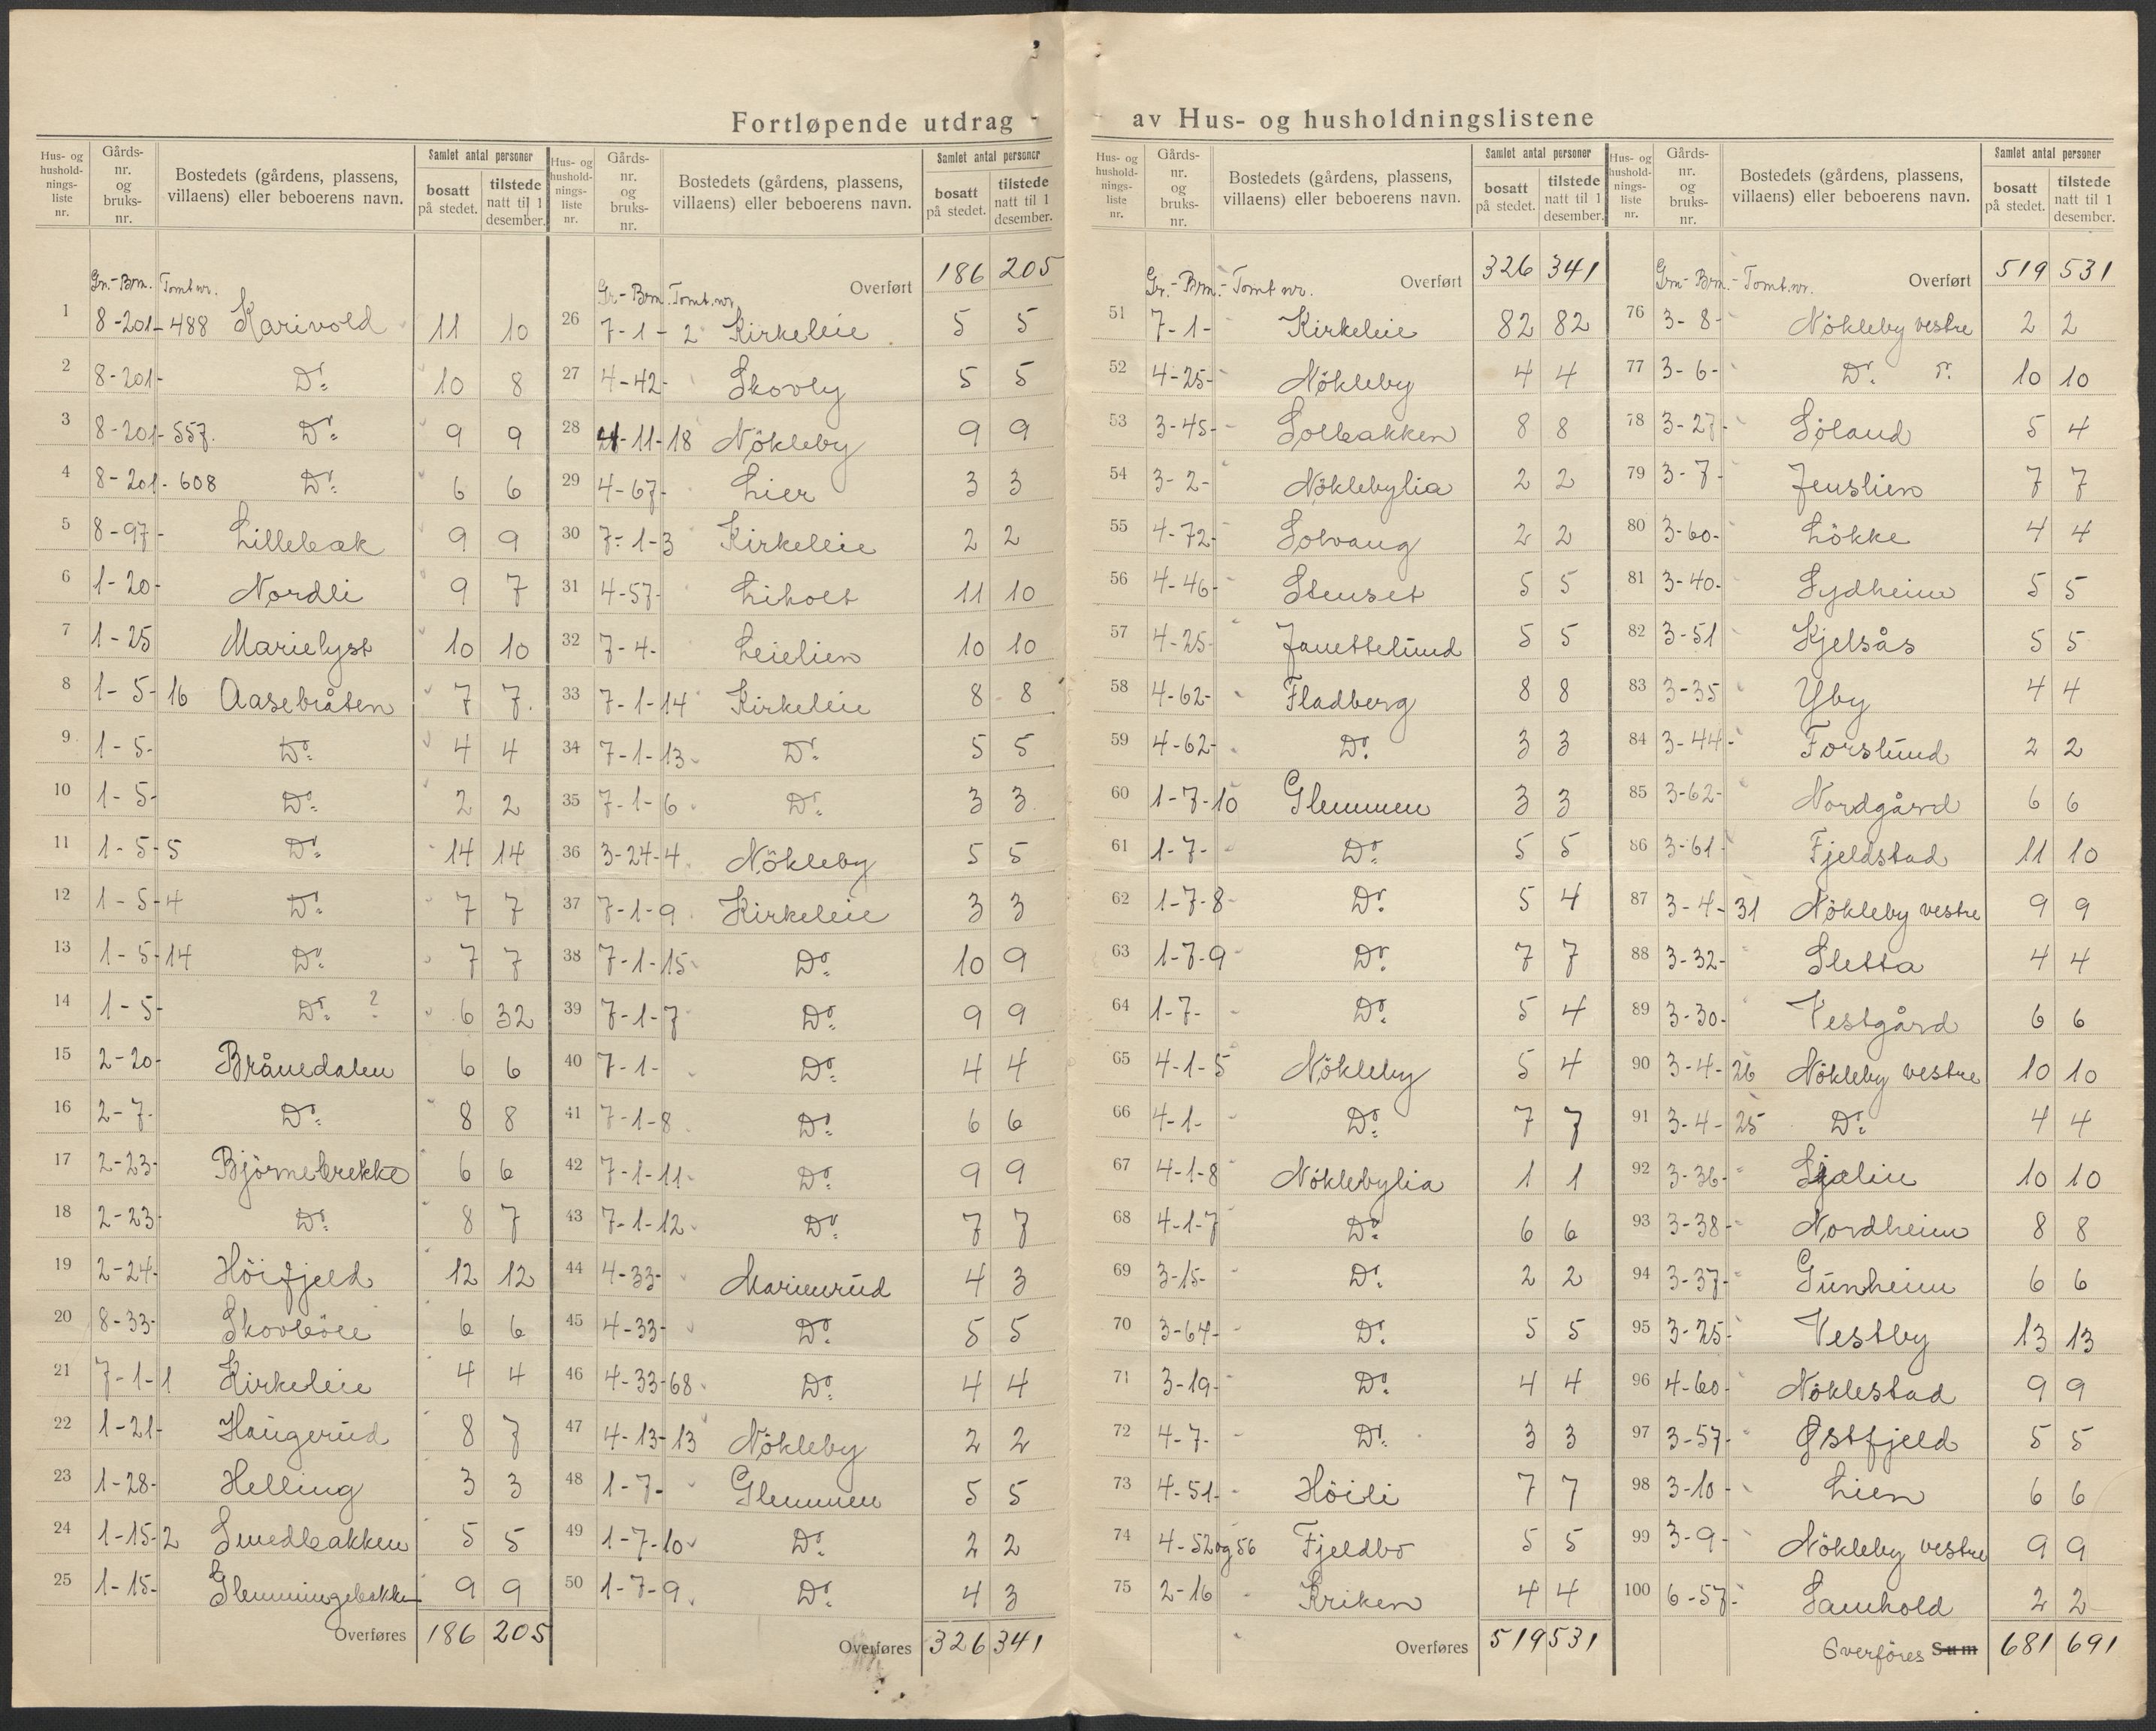 Fortløpende utdrag - av Hus- og husholdningslistene
Hus- og hushold-nings-liste nr. Gårds-nr. og bruks-nr. Bostedets (gårdens, plassens, villaens) eller beboerens navn. Samlet antal personer bosatt på stedet. tilstede natt til 1 desember.
Gn.- Brn. Tomt nr.
1 8-201-488 Karivold 11 10
2 8-201- Do 10 8
3 8-201-557. Do 9 9
4 8-201-608 Do 6 6
5 8-97- Lillebak 9 9
6 1-20- Nordli 9 7
7 1-25 Marielyst 10 10
8 1-5-16 Aasebråten 7 7
9 1-5- Do 4 4
10 1-5- Do 2 2
11 1-5-5 Do 14 14
12 1-5-4 Do 7 7
13 1-5-14 Do 7 7
14 1-5- Do ? 6 32
15 2-20- Brånedalen 6 6
16 2-7- Do 8 8
17 2-23- Björnebrekke 6 6
18 2-23- Do 8 7
19 2-24- Höifjeld 12 12
20 8-33- 6 6
21 7-1-1 Kirkeleie 4 4
22 1-21- Haugerud 8 7
23 1-28- Helling 3 3
24 1-15-2 Smedbakken 5 5
25 1-15- Glemmingebakken 9 9
Overføres 186 205
Hus- og hushold-nings-liste nr. Gårds-nr. og bruks-nr. Bostedets (gårdens, plassens, villaens) eller beboerens navn. Samlet antal personer bosatt på stedet. tilstede natt til 1 desember.
Gr.- Brn. Tomt. nr. Overført 186 205
26 7-1-2 Kirkeleie 5 5
27 4-42- Skovly 5 5
28 4-11-18 Nökleby 9 9
29 4-67- Lier 3 3
30 7-1-3 Kirkeleie 2 2
31 4-57- Liholt 11 10
32 7-4- Leielien 10 10
33 7-1-14 Kirkeleie 8 8
34 7-1-13 Do 5 5
35 7-1-6 Do 3 3
36 3-24-4 Nökleby 5 5
37 7-1-9 Kirkeleie 3 3
38 7-1-15 Do 10 9
39 7-1-7 Do 9 9
40 7-1- Do 4 4
41 7-1-8 Do 6 6
42 7-1-11 Do 9 9
43 7-1-12 Do 7 7
44 4-33- Marienrud 4 3
45 4-33- Do 5 5
46 4-33-68 Do 4 4
47 4-13-13 Nökleby 2 2
48 1-7- Glemmen 5 5
49 1-7-10 Do 2 2
50 1-7-9 Do 4 3
Overføres 326 341
Hus- og hushold-nings-liste nr. Gårds-nr. og bruks-nr. Bostedets (gårdens, plassens, villaens) eller beboerens navn. Samlet antal personer bosatt på stedet. tilstede natt til 1 desember.
Gr.- Brn.- Tomt nr. Overført 326 341
51 7-1- Kirkeleie 82 82
52 4-25- Nökleby 4 4
53 3-45- Solbakken 8 8
54 3-2- Nöklebylia 2 2
55 4-72- Solvang 2 2
56 4-46- Stenset 5 5
57 4-25- Janettelund 5 5
58 4-62- Fladberg 8 8
59 4-62- Do 3 3
60 1-7-10 Glemmen 3 3
61 1-7- Do 5 5
62 1-7-8 Do 5 4
63 1-7-9 Do 7 7
64 1-7- Do 5 4
65 4-1-5 Nökleby 5 4
66 4-1- Do 7 7
67 4-1-8 Nöklebylia 1 1
68 4-1-7 Do 6 6
69 3-15- Do 2 2
70 3-64- Do 5 5
71 3-19- Do 4 4
72 4-7- Do 3 3
73 4-51- Höili 7 7
74 4-52 og 56 Fjeldbo 5 5
75 2-16 Kriken 4 4
Overføres 519 531
Hus- og hushold-nings-liste nr. Gårds-nr. og bruks-nr. Bostedets (gårdens, plassens, villaens) eller beboerens navn. Samlet antal personer bosatt på stedet. tilstede natt til 1 desember.
Grn- Brn.- Tomt. nr. Overført 519 531
76 3-8- Nökleby vestre 2 2
77 3-6- Do Do 10 10
78 3-27- Söland 5 4
79 3-7- Jenslien 7 7
80 3-60- Lökke 4 4
81 3-40- Sydheim 5 5
82 3-51 Kjelsås 5 5
83 3-35 Yby 4 4
84 3-44- Forslund 2 2
85 3-62- Nordgård 6 6
86 3-61- Fjeldstad 11 10
87 3-4-31 Nökleby vestre 9 9
88 3-32- Sletta 4 4
89 3-30- Vestgård 6 6
90 3-4-26 Nökleby vestre 10 10
91 3-4-25 Do 4 4
92 3-36- 10 10
93 3-38- Nordheim 8 8
94 3-37- Gunheim 6 6
95 3-25- Vestby 13 13
96 4-60- Nöklestad 9 9
97 3-57- Østfjeld 5 5
98 3-10- Lien 6 6
99 3-9- Nökleby vestre 9 9
100 6-57- Samhold 2 2
Overföres Sum 681 691